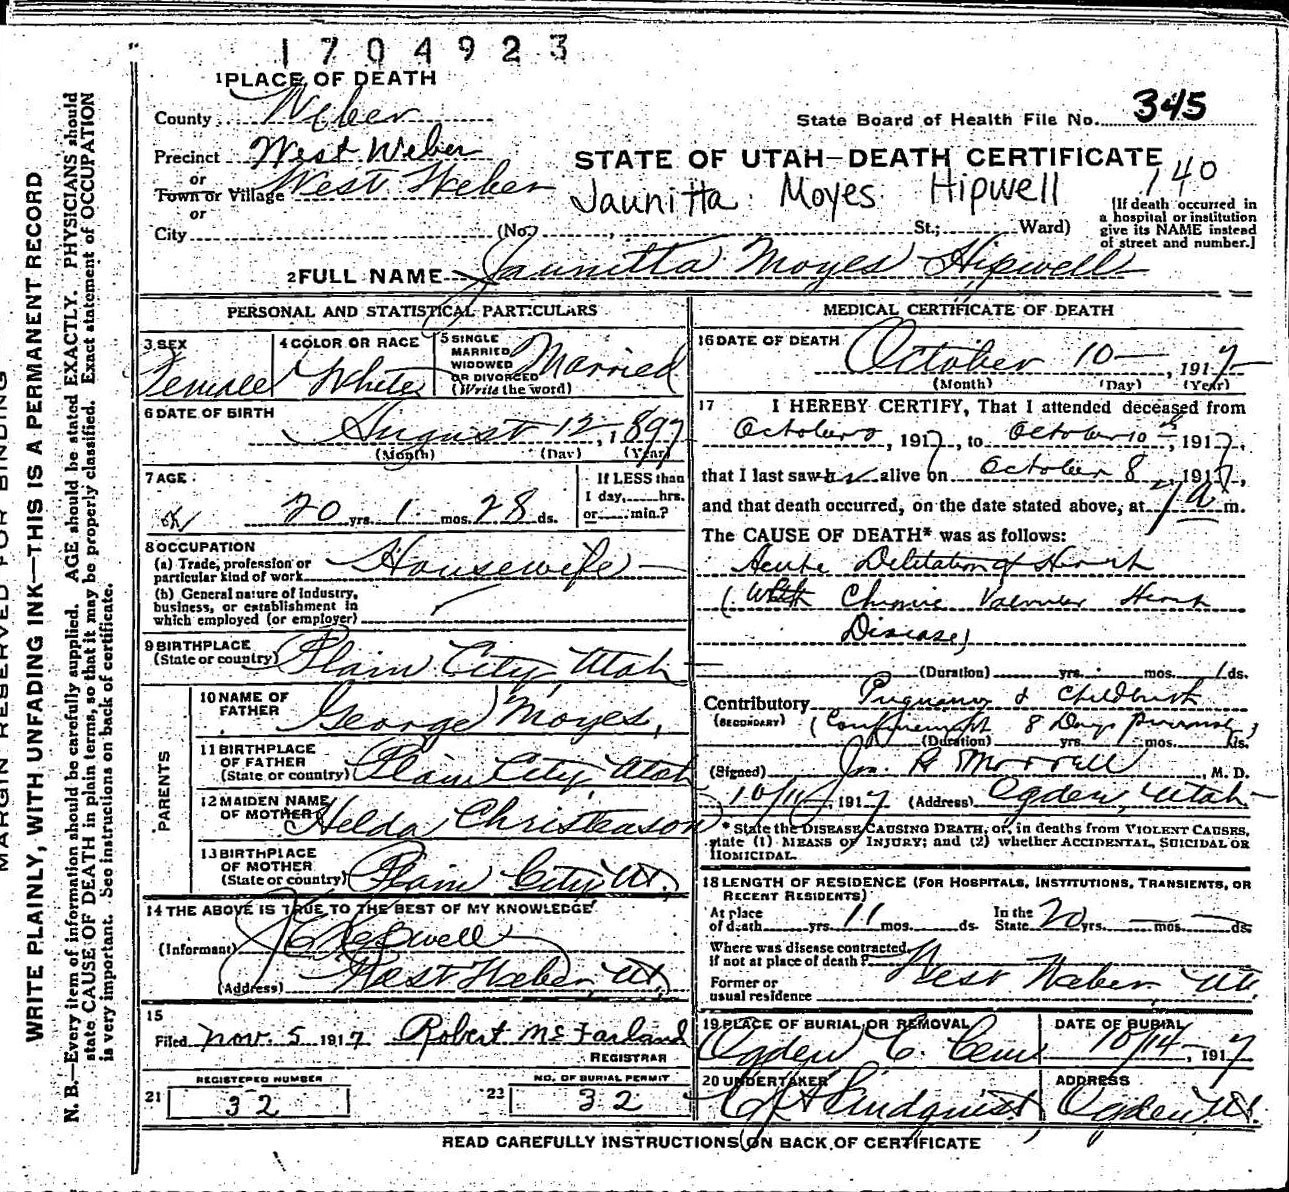 1704923
1 PLACE OF DEATH
County Weber
State Board of Health File No. 345
Precinct West Weber
STATE OF UTAH—DEATH CERTIFICATE
or
Town or Village West Weber
Jaunitta Moyes Hipwell
140
or
City (No. St.; Ward)
[If death occurred in
a hospital or institution
give its NAME instead
of street and number.]
2 FULL NAME Jaunitta Moyes Hipwell
PERSONAL AND STATISTICAL PARTICULARS
3 SEX
Female
4 COLOR OR RACE
White
5 SINGLE
MARRIED
WIDOWED
OR DIVORCED
(Write the word)
Married
6 DATE OF BIRTH
August 12, 1897
(Month) (Day) (Year)
7 AGE
20 yrs. 1 mos. 28 ds.
If LESS than
1 day, hrs.
or min.?
8 OCCUPATION
(a) Trade, profession or
particular kind of work Housewife
(b) General nature of industry,
business, or establishment in
which employed (or employer)
9 BIRTHPLACE
(State or country) Plain City, Utah
PARENTS
10 NAME OF
FATHER George Moyes,
11 BIRTHPLACE
OF FATHER
(State or country) Plain City, Utah
12 MAIDEN NAME
OF MOTHER Helda Christeason
13 BIRTHPLACE
OF MOTHER
(State or country) Plain City, Ut.
14 THE ABOVE IS TRUE TO THE BEST OF MY KNOWLEDGE
(Informant) Hipwell
(Address) West Weber, Ut.
15
Filed Nov. 5 1917 Robert McFarland
REGISTRAR
REGISTERED NUMBER
21 32
NO. OF BURIAL PERMIT
23 32
MEDICAL CERTIFICATE OF DEATH
16 DATE OF DEATH
October 10 — , 1917
(Month) (Day) (Year)
17 I HEREBY CERTIFY, That I attended deceased from
October , 1917, to October 10th, 1917,
that I last saw her alive on October 8, 1917,
and that death occurred, on the date stated above, at 7 a m.
The CAUSE OF DEATH* was as follows:
Acute Dilitation of Heart
(With Chronic Valvular Heart
Disease)
(Duration) yrs. mos. 1 ds.
Contributory Pregnancy & Childbirth
(SECONDARY) (Confinement 8 Days previously)
(Duration) yrs. mos. ds.
(Signed) Jos. R Morrell, M. D.
10/11, 1917 (Address) Ogden, Utah
* State the DISEASE CAUSING DEATH, or, in deaths from VIOLENT CAUSES,
state (1) MEANS OF INJURY; and (2) whether ACCIDENTAL, SUICIDAL OR
HOMICIDAL.
18 LENGTH OF RESIDENCE (FOR HOSPITALS, INSTITUTIONS, TRANSIENTS, OR
RECENT RESIDENTS)
At place
of death yrs. 11 mos. ds.
In the
State 20 yrs. mos. ds.
Where was disease contracted,
if not at place of death?
Former or
usual residence
West Weber, Ut.
19 PLACE OF BURIAL OR REMOVAL
Ogden C. Cem
DATE OF BURIAL
10/14, 1917
20 UNDERTAKER
Lindquist
ADDRESS
Ogden Ut.
READ CAREFULLY INSTRUCTIONS ON BACK OF CERTIFICATE
MARGIN RESERVED FOR BINDING
WRITE PLAINLY, WITH UNFADING INK—THIS IS A PERMANENT RECORD
N. B.—Every item of information should be carefully supplied. AGE should be stated EXACTLY. PHYSICIANS should
state CAUSE OF DEATH in plain terms, so that it may be properly classified. Exact statement of OCCUPATION
is very important. See instructions on back of certificate.